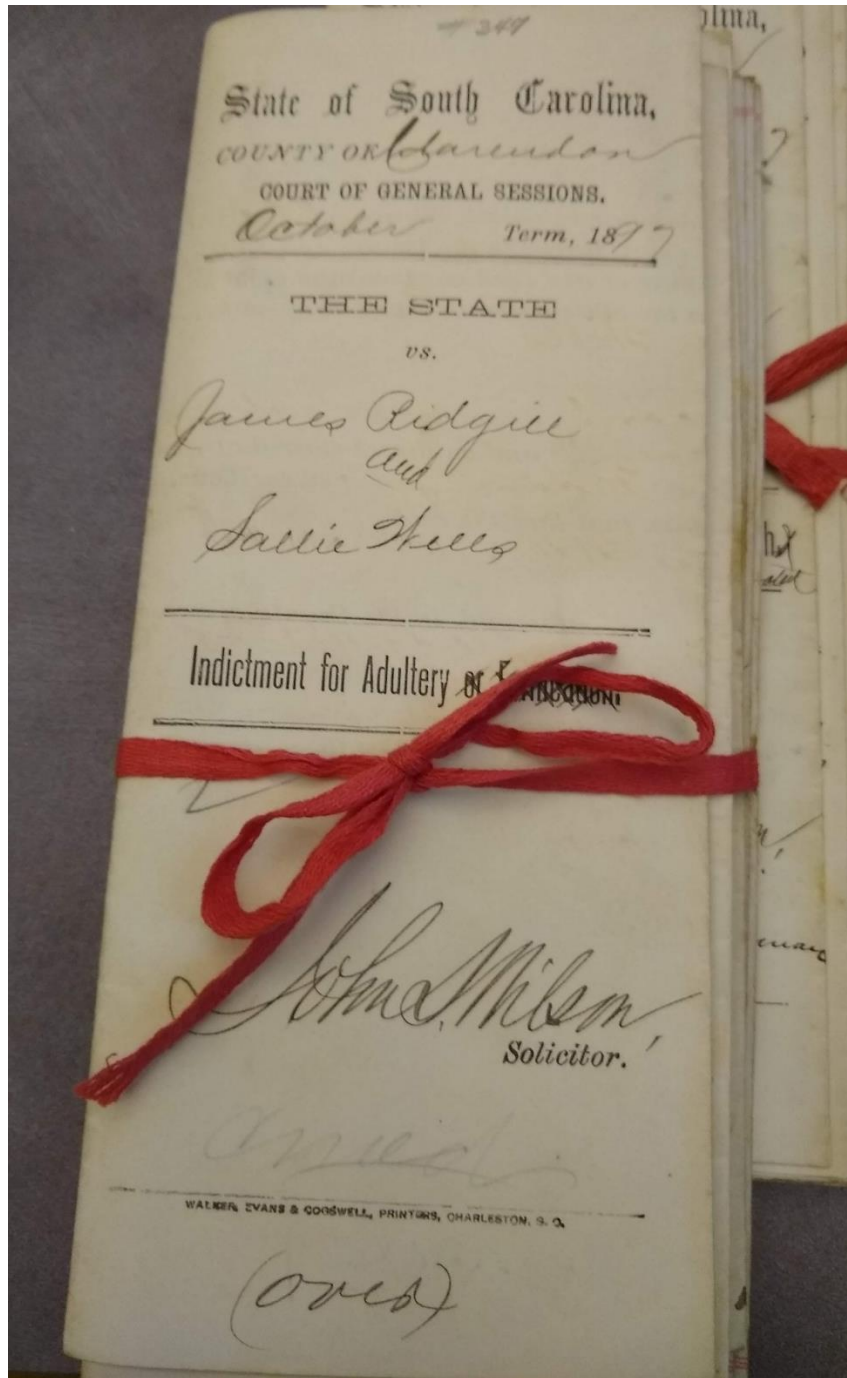 # 249
State of South Carolina,
COUNTY OF Clarendon
COURT OF GENERAL SESSIONS.
October Term, 1897
THE STATE
vs.
James Ridgill
and
Sallie Wells
Indictment for Adultery or
John S. Wilson,
Solicitor.
WALKER, EVANS & COGSWELL, PRINTERS, CHARLESTON, S. C.
(over)
olina,